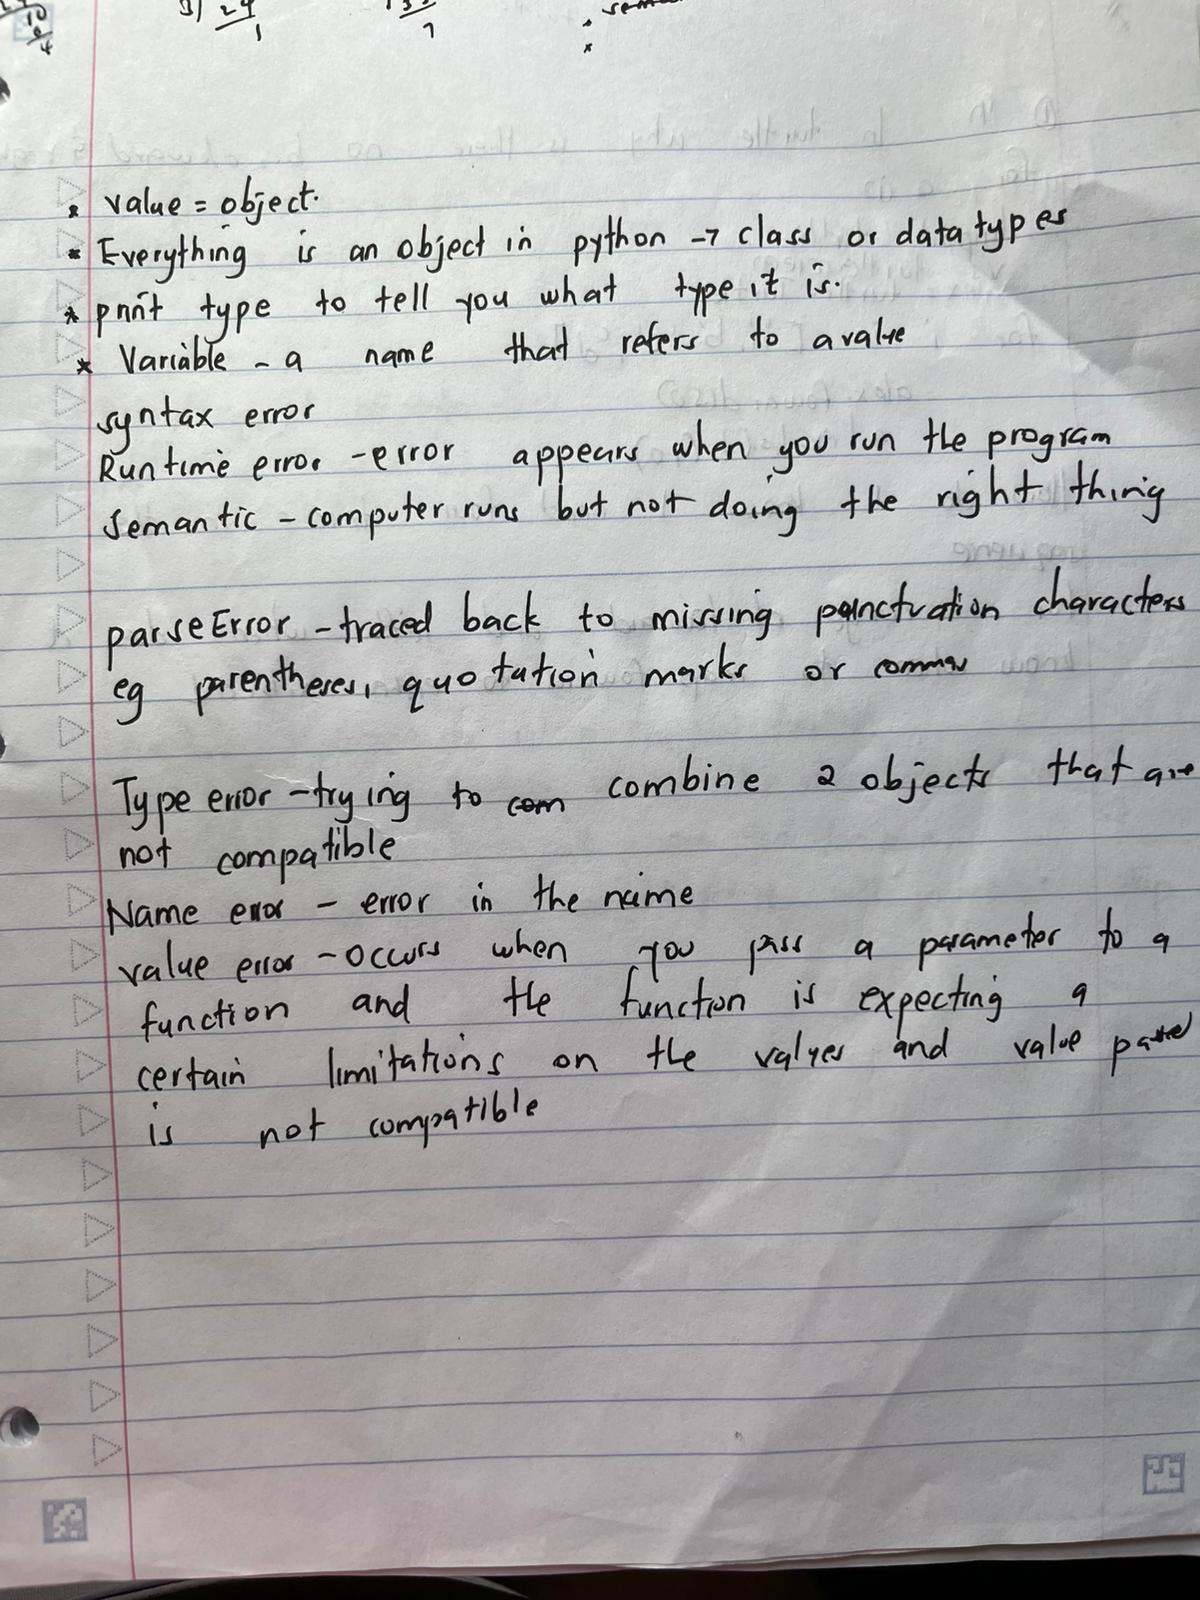 3) 24
10
4
1
7
* value = object.
* Everything is an object in python → class or data types
* print type to tell you what type it is.
* Variable - a name that refers to a value
syntax error
Runtime error - error appears when you run the program
Semantic - computer runs but not doing the right thing
parseError - traced back to missing punctuation characters
eg parentheses, quotation marks or commas
Type error - trying to com combine 2 objects that are
not compatible
Name error - error in the name
value error - occurs when you pass a parameter to a
function and the function is expecting a
certain limitations on the values and value passed
is not compatible